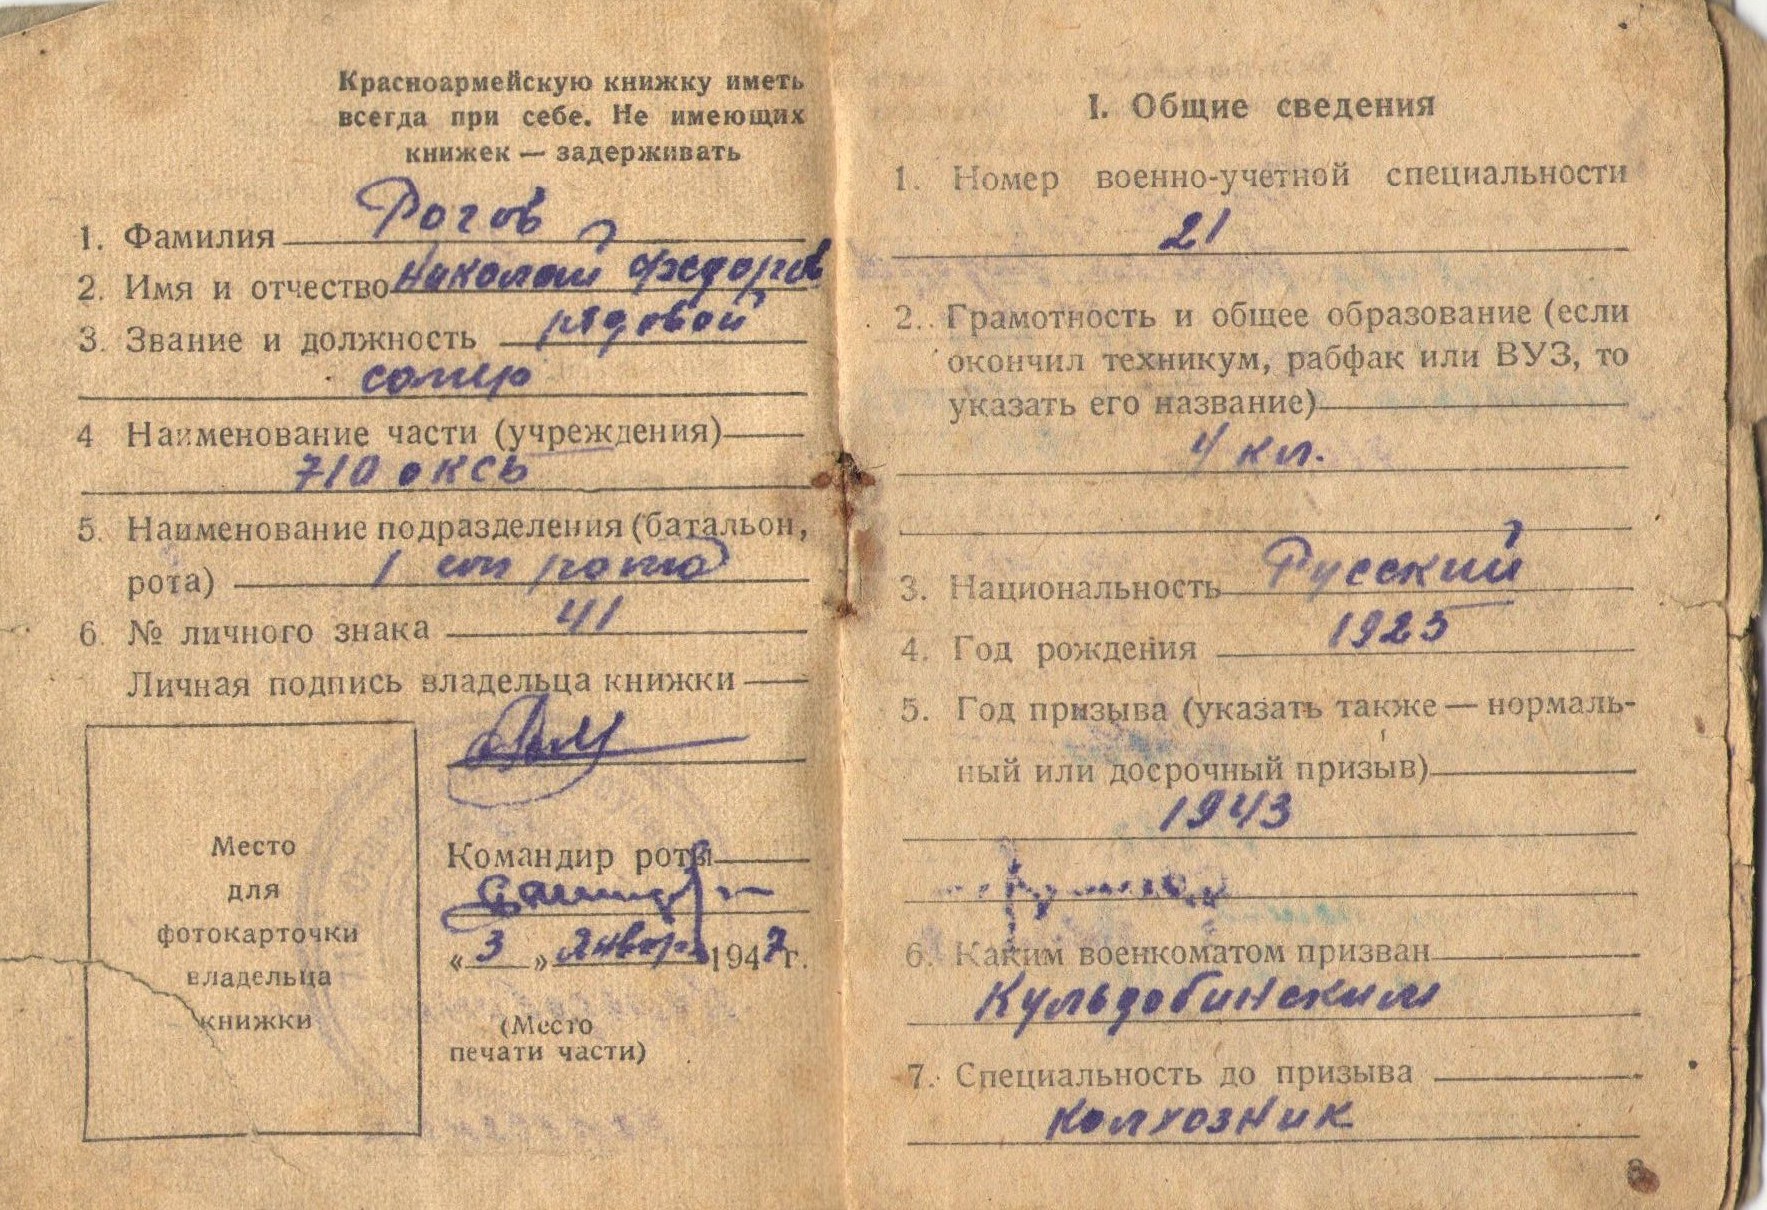 Красноармейскую книжку иметь
всегда при себе. Не имеющих
книжек — задерживать
1. Фамилия Рогов
2. Имя и отчество Николай Федоров
3. Звание и должность рядовой
сапер
4 Наименование части (учреждения)
710 оксб
5. Наименование подразделения (батальон,
1 рота
рота)
6. № личного знака 41
Личная подпись владельца книжки
Место
для
фотокарточки
владельца
книжки
Командир роты
« 3 » января 1947 г.
(Место
печати части)
I. Общие сведения
1. Номер военно-учетной специальности
21
2. Грамотность и общее образование (если
окончил техникум, рабфак или ВУЗ, то
указать его название)
4 кл.
3. Национальность Русский
4. Год рождения 1925
5. Год призыва (указать также — нормаль-
ный или досрочный призыв)
1943
6. Каким военкоматом призван
Кульдобинским
7. Специальность до призыва
колхозник